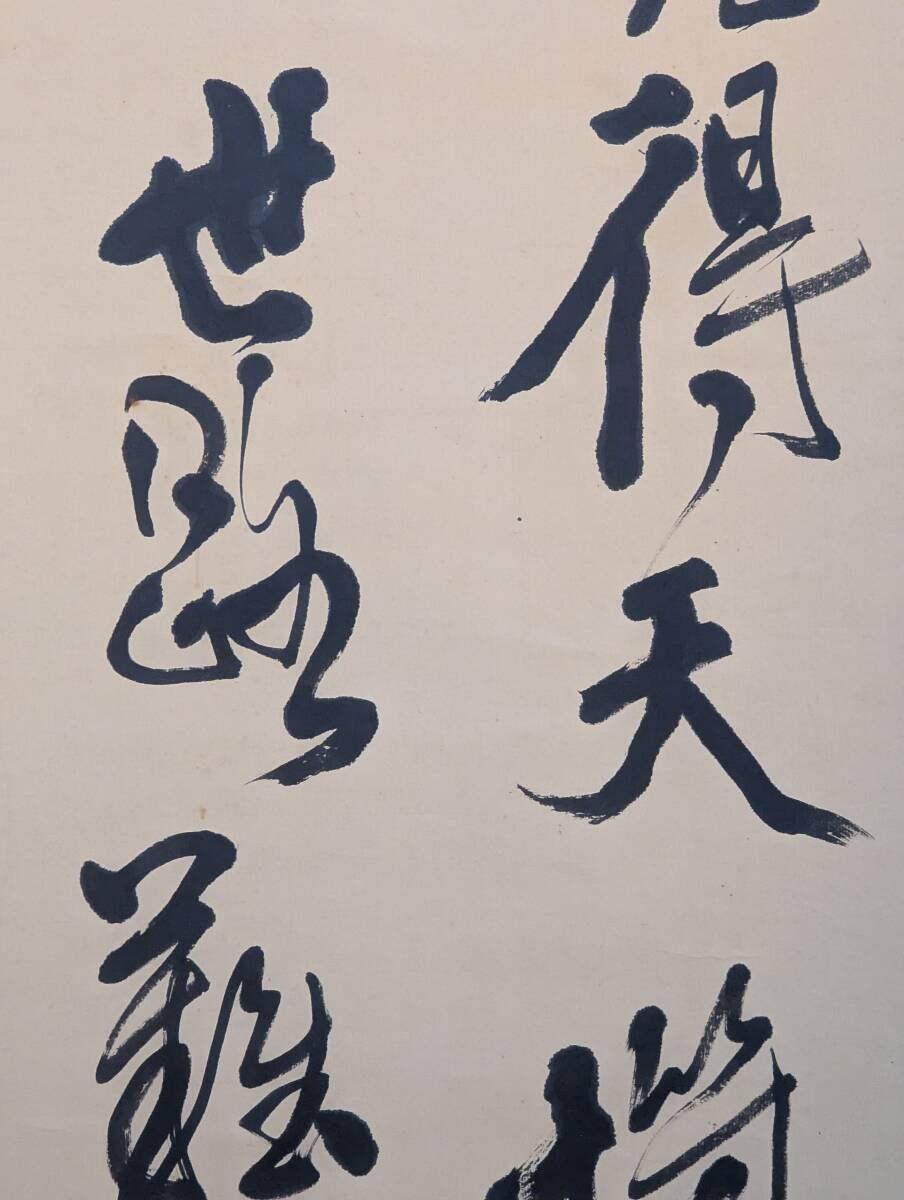 得天
世路難